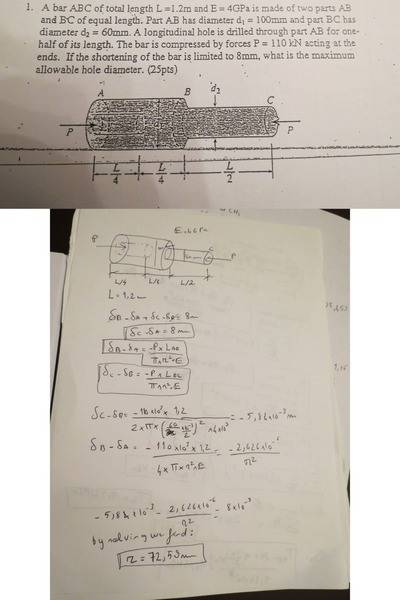 1. A bar ABC of total length L =1.2m and E = 4GPa is made of two parts AB
and BC of equal length. Part AB has diameter d₁ = 100mm and part BC has
diameter d₂ = 60mm. A longitudinal hole is drilled through part AB for one-
half of its length. The bar is compressed by forces P = 110 kN acting at the
ends. If the shortening of the bar is limited to 8mm, what is the maximum
allowable hole diameter. (25pts)
A B d₂ C
P P
L/4 L/4 L/2
P
L/4 L/4 L/2
L = 1,2m
δC - δA = 8m
δB - δA = -P x LAB / πr².E
δC - δB = -P x LBC / πr².E
= -5,84 x10⁻³ m
δB - δA = - 110 x10³ x 1,2 / 4 x π x r² x E = -2,626x10⁻⁶ / r²
-5,84 x10⁻³ - 2,626x10⁻⁶ / r² = 8x10⁻³
by solving we find:
r = 72,53mm